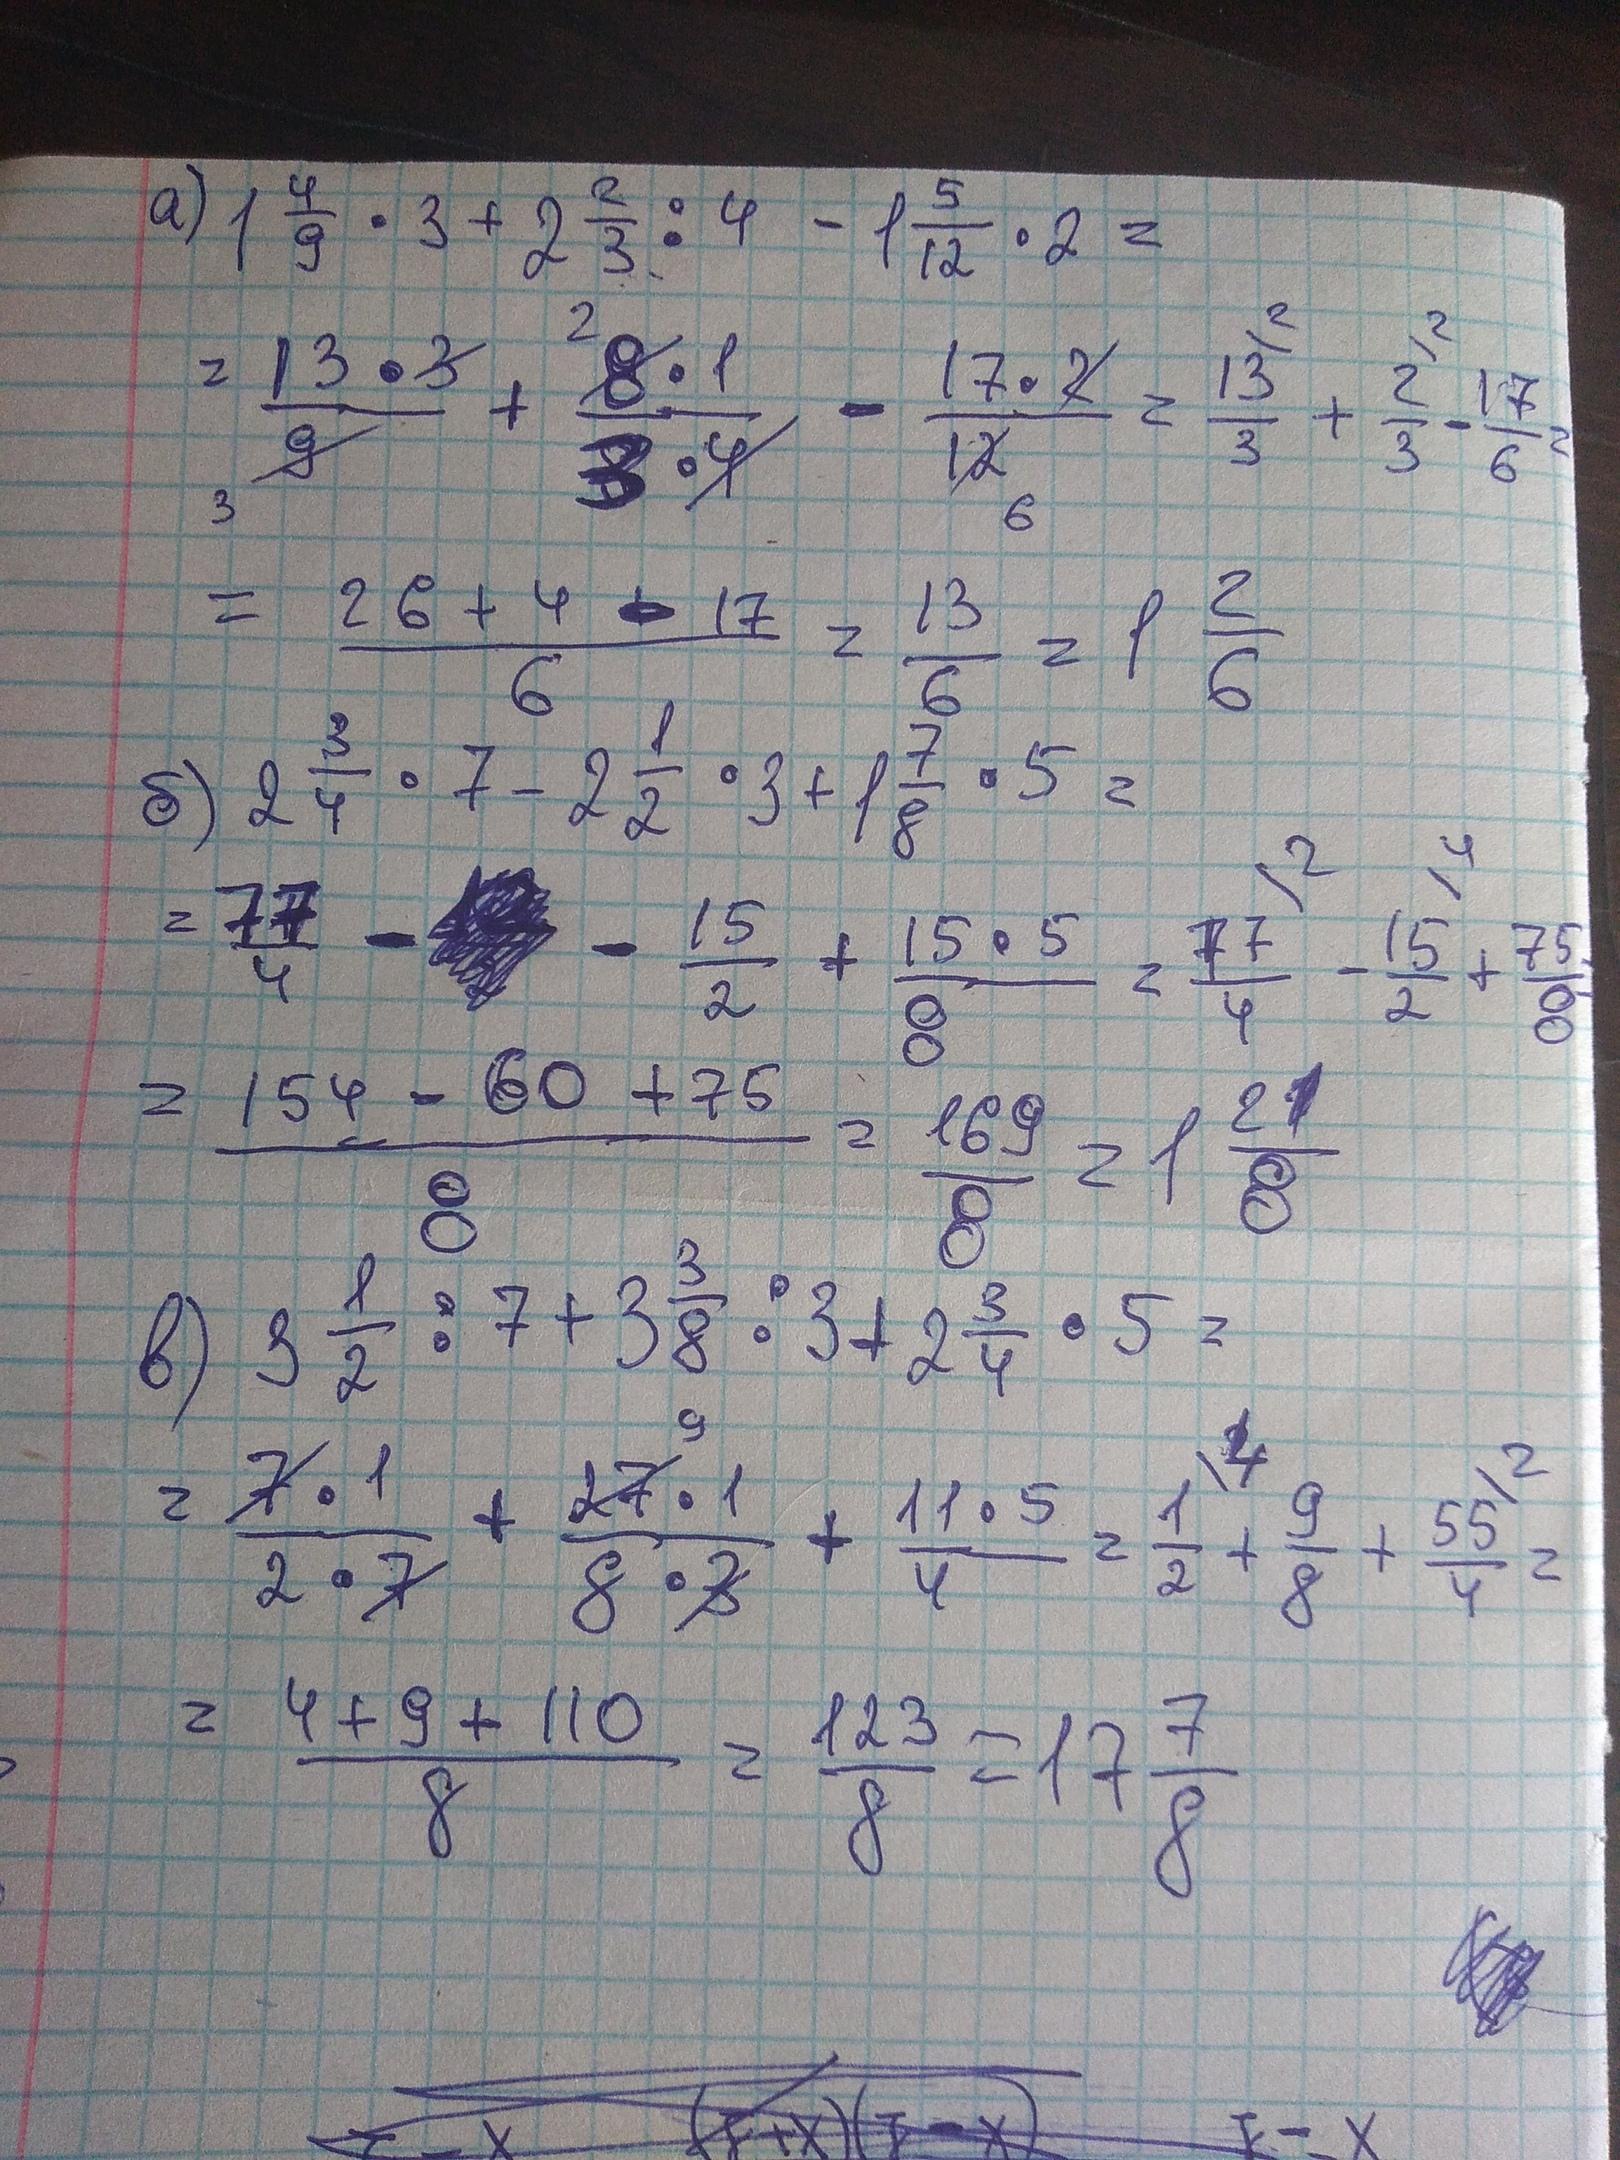 а) 1 4/9 · 3 + 2 2/3 : 4 - 1 5/12 · 2 =
= 13·3/9 + 8·1/3·4 - 17·2/12 = 13/3 + 2/3 - 17/6 =
= 26 + 4 - 17/6 = 13/6 = 1 2/6
б) 2 3/4 · 7 - 2 1/2 · 3 + 1 7/8 · 5 =
= 77/4 - - 15/2 + 15·5/8 = 77/4 - 15/2 + 75/8 =
= 154 - 60 + 75/8 = 169/8 = 1 21/8
в) 3 1/2 : 7 + 3 3/8 : 3 + 2 3/4 · 5 =
= 7·1/2·7 + 27·1/8·3 + 11·5/4 = 1/2 + 9/8 + 55/4 =
= 4 + 9 + 110/8 = 123/8 = 17 7/8